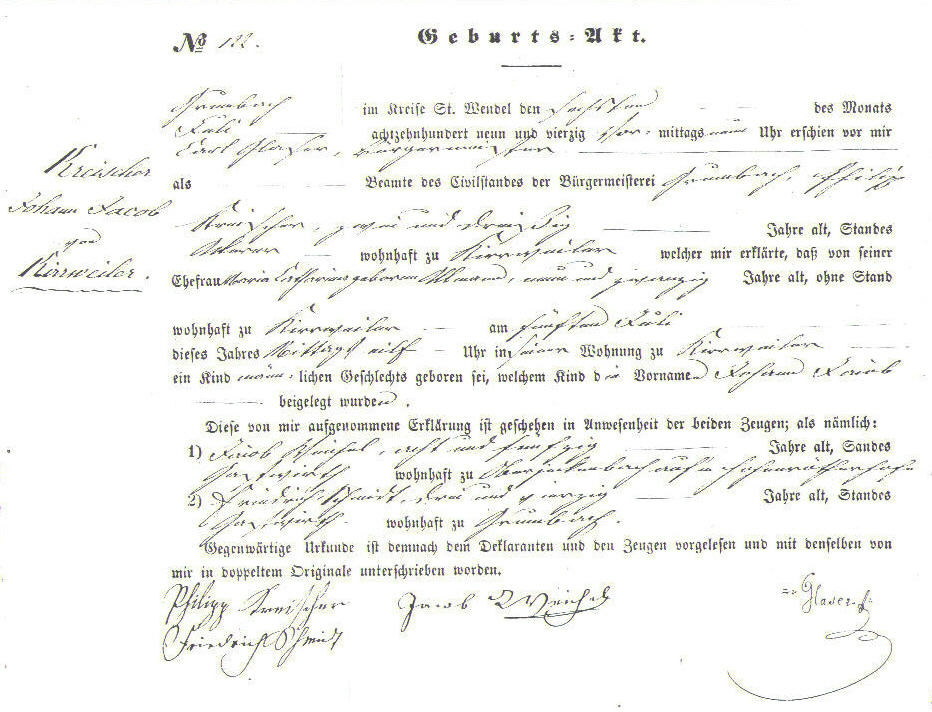 No 122.
Geburts-Akt.
Kreischer
Johann Jacob
von
Kirrweiler.
Grumbach im Kreise St. Wendel den sechsten des Monats
Juli achtzehnhundert neun und vierzig Vor-mittags neun Uhr erschien vor mir
Carl Glaser, Bürgermeister
als Beamte des Civilstandes der Bürgermeisterei Grumbach, Philipp
Kreischer, zwei und dreißig Jahre alt, Standes
wohnhaft zu Kirrweiler welcher mir erklärte, daß von seiner
Ehefrau Maria Catharina geborene Ullmann, neun und zwanzig Jahre alt, ohne Stand
wohnhaft zu Kirrweiler am fünften Juli
dieses Jahres Mittags eilf Uhr in seiner Wohnung zu Kirrweiler
ein Kind männ-lichen Geschlechts geboren sei, welchem Kind die Vornamen Johann Jacob
beigelegt wurden.
Diese von mir aufgenommene Erklärung ist geschehen in Anwesenheit der beiden Zeugen; als nämlich:
1) Jacob Weichel, acht und fünfzig Jahre alt, Sandes
Gastwirth wohnhaft zu Oberjeckenbach auf'm
2) Friedrich Schmidt, drei und vierzig Jahre alt, Standes
Gastwirth wohnhaft zu Grumbach.
Gegenwärtige Urkunde ist demnach dem Deklaranten und den Zeugen vorgelesen und mit denselben von
mir in doppeltem Originale unterschrieben worden.
Philipp Kreischer Jacob Weichel Glaser
Friedrich Schmidt